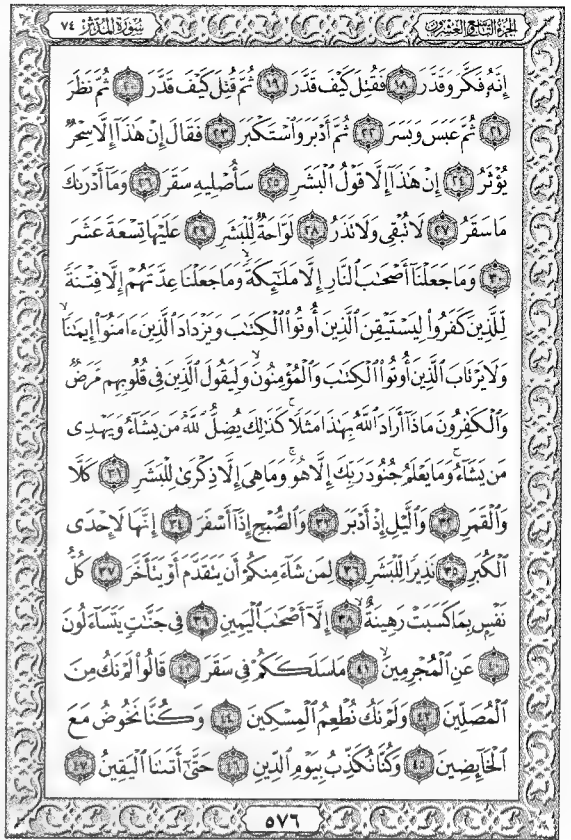 الجزء التاسع والعشرون
سورة المدثر ٧٤
إِنَّهُۥ فَكَّرَ وَقَدَّرَ ١٨ فَقُتِلَ كَيْفَ قَدَّرَ ١٩ ثُمَّ قُتِلَ كَيْفَ قَدَّرَ ٢٠ ثُمَّ نَظَرَ
٢١ ثُمَّ عَبَسَ وَبَسَرَ ٢٢ ثُمَّ أَدْبَرَ وَٱسْتَكْبَرَ ٢٣ فَقَالَ إِنْ هَٰذَآ إِلَّا سِحْرٌ
يُؤْثَرُ ٢٤ إِنْ هَٰذَآ إِلَّا قَوْلُ ٱلْبَشَرِ ٢٥ سَأُصْلِيهِ سَقَرَ ٢٦ وَمَآ أَدْرَىٰكَ
مَا سَقَرُ ٢٧ لَا تُبْقِى وَلَا تَذَرُ ٢٨ لَوَّاحَةٌ لِّلْبَشَرِ ٢٩ عَلَيْهَا تِسْعَةَ عَشَرَ
٣٠ وَمَا جَعَلْنَآ أَصْحَٰبَ ٱلنَّارِ إِلَّا مَلَٰٓئِكَةً ۙ وَمَا جَعَلْنَا عِدَّتَهُمْ إِلَّا فِتْنَةً
لِّلَّذِينَ كَفَرُوا۟ لِيَسْتَيْقِنَ ٱلَّذِينَ أُوتُوا۟ ٱلْكِتَٰبَ وَيَزْدَادَ ٱلَّذِينَ ءَامَنُوٓا۟ إِيمَٰنًا ۙ
وَلَا يَرْتَابَ ٱلَّذِينَ أُوتُوا۟ ٱلْكِتَٰبَ وَٱلْمُؤْمِنُونَ ۙ وَلِيَقُولَ ٱلَّذِينَ فِى قُلُوبِهِم مَّرَضٌ
وَٱلْكَٰفِرُونَ مَاذَآ أَرَادَ ٱللَّهُ بِهَٰذَا مَثَلًا ۚ كَذَٰلِكَ يُضِلُّ ٱللَّهُ مَن يَشَآءُ وَيَهْدِى
مَن يَشَآءُ ۚ وَمَا يَعْلَمُ جُنُودَ رَبِّكَ إِلَّا هُوَ ۚ وَمَا هِىَ إِلَّا ذِكْرَىٰ لِلْبَشَرِ ٣١ كَلَّا
وَٱلْقَمَرِ ٣٢ وَٱلَّيْلِ إِذْ أَدْبَرَ ٣٣ وَٱلصُّبْحِ إِذَآ أَسْفَرَ ٣٤ إِنَّهَا لَإِحْدَى
ٱلْكُبَرِ ٣٥ نَذِيرًا لِّلْبَشَرِ ٣٦ لِمَن شَآءَ مِنكُمْ أَن يَتَقَدَّمَ أَوْ يَتَأَخَّرَ ٣٧ كُلُّ
نَفْسٍۭ بِمَا كَسَبَتْ رَهِينَةٌ ٣٨ إِلَّآ أَصْحَٰبَ ٱلْيَمِينِ ٣٩ فِى جَنَّٰتٍ يَتَسَآءَلُونَ
٤٠ عَنِ ٱلْمُجْرِمِينَ ۙ ٤١ مَا سَلَكَكُمْ فِى سَقَرَ ٤٢ قَالُوا۟ لَمْ نَكُ مِنَ
ٱلْمُصَلِّينَ ٤٣ وَلَمْ نَكُ نُطْعِمُ ٱلْمِسْكِينَ ٤٤ وَكُنَّا نَخُوضُ مَعَ
ٱلْخَآئِضِينَ ٤٥ وَكُنَّا نُكَذِّبُ بِيَوْمِ ٱلدِّينِ ٤٦ حَتَّىٰٓ أَتَىٰنَا ٱلْيَقِينُ ٤٧
٥٧٦